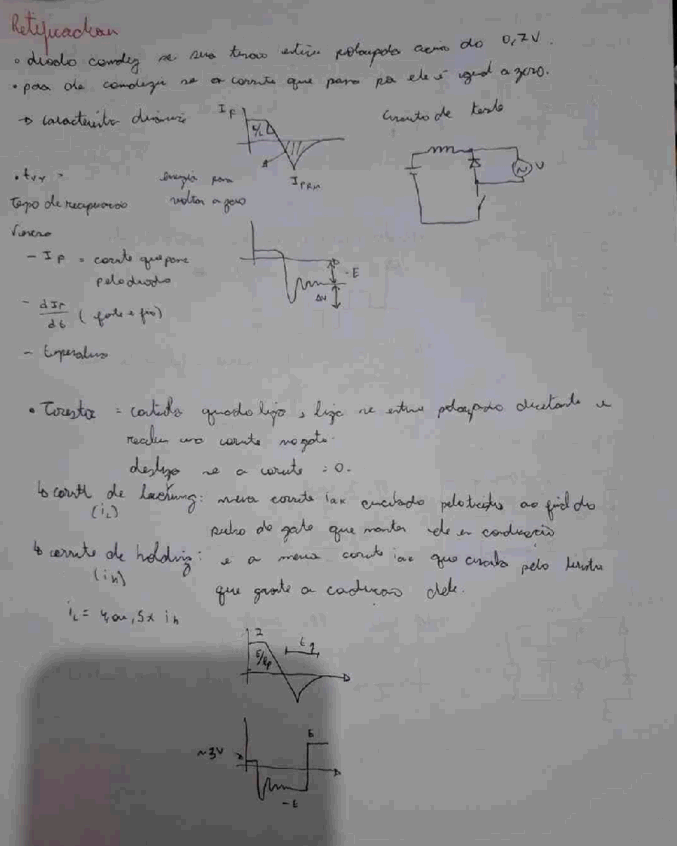 Retificadores
• diodo conduz se sua tensão estiver polarizada acima do 0,7V.
• para de conduzir se a corrente que passa por ele é igual a zero.
→ característica dinâmica
I_F
E/L
I_RRM
Circuito de teste
V
• trr =
tempo de recuperação
reversa
energia para
voltar a zero
- I_F = corrente que passa
pelo diodo
- dI_F/dt (fonte e fio)
- temperatura
- E
ΔV
• Tiristor = controla quando liga, liga se estiver polarizado diretamente e
recebeu uma corrente no gate.
desliga se a corrente = 0.
↳ corrente de Latching: menor corrente Iak pelo tiristor ao final do
(iL)
pulso do gate que mantem ele em condução
↳ corrente de holding: é a menor corrente iak que circula pelo tiristor
(ih)
que garante a condução dele.
iL = ih
I
E/Lp
tq
~3V
E
-E